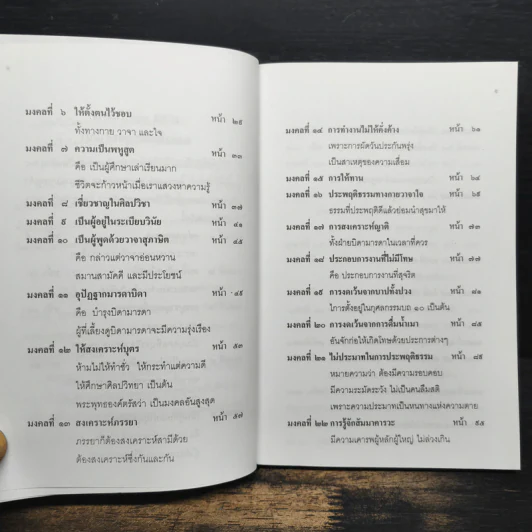 มงคลที่ ๖ ให้ตั้งตนไว้ชอบ หน้า ๒๕
ทั้งทางกาย วาจา และใจ
มงคลที่ ๗ ความเป็นพหูสูต หน้า ๓๓
คือ เป็นผู้ศึกษาเล่าเรียนมาก
ชีวิตจะก้าวหน้าเมื่อเราแสวงหาความรู้
มงคลที่ ๘ เชี่ยวชาญในศิลปวิชา หน้า ๓๗
มงคลที่ ๙ เป็นผู้อยู่ในระเบียบวินัย หน้า ๔๑
มงคลที่ ๑๐ เป็นผู้พูดด้วยวาจาสุภาษิต หน้า ๔๕
คือ กล่าวแต่วาจาอ่อนหวาน
สมานสามัคคี และมีประโยชน์
มงคลที่ ๑๑ อุปัฏฐากมารดาบิดา หน้า ๔๙
คือ บำรุงบิดามารดา
ผู้ที่เลี้ยงดูบิดามารดาจะมีความรุ่งเรือง
มงคลที่ ๑๒ ให้สงเคราะห์บุตร หน้า ๕๓
ห้ามไม่ให้ทำชั่ว ให้กระทำแต่ความดี
ให้ศึกษาศิลปวิทยา เป็นต้น
พระพุทธองค์ตรัสว่า เป็นมงคลอันสูงสุด
มงคลที่ ๑๓ สงเคราะห์ภรรยา หน้า ๕๗
ภรรยาก็ต้องสงเคราะห์สามีด้วย
ต้องสงเคราะห์ซึ่งกันและกัน
มงคลที่ ๑๔ การทำงานไม่ให้คั่งค้าง หน้า ๖๑
เพราะการผัดวันประกันพรุ่ง
เป็นสาเหตุของความเสื่อม
มงคลที่ ๑๕ การให้ทาน หน้า ๖๔
มงคลที่ ๑๖ ประพฤติธรรมทางกายวาจาใจ หน้า ๖๕
ธรรมที่ประพฤติดีแล้วย่อมนำสุขมาให้
มงคลที่ ๑๗ การสงเคราะห์ญาติ หน้า ๗๓
ทั้งฝ่ายบิดามารดาในเวลาที่ควร
มงคลที่ ๑๘ ประกอบการงานที่ไม่มีโทษ หน้า ๗๗
คือ ประกอบการงานที่สุจริต
มงคลที่ ๑๙ การงดเว้นจากบาปทั้งปวง หน้า ๘๑
ตั้งอยู่ในกุศลกรรมบถ ๑๐ เป็นต้น
มงคลที่ ๒๐ การงดเว้นจากการดื่มน้ำเมา หน้า ๘๕
อันจักก่อให้เกิดโทษด้วยประการต่างๆ
มงคลที่ ๒๑ ไม่ประมาทในการประพฤติธรรม หน้า ๘๙
หมายความว่า ต้องมีความรอบคอบ
มีความระมัดระวัง ไม่เป็นคนลืมสติ
เพราะความประมาทเป็นหนทางแห่งความตาย
มงคลที่ ๒๒ การรู้จักสัมมาคารวะ หน้า ๙๕
มีความเคารพผู้หลักผู้ใหญ่ ไม่ล่วงเกิน